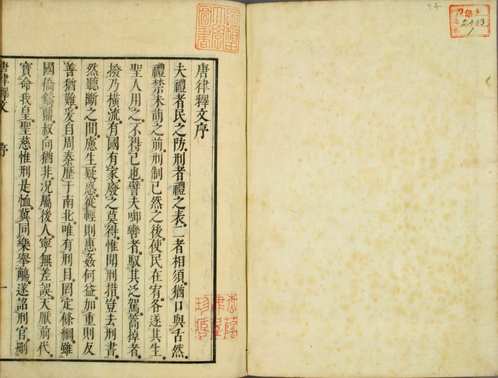 唐律釋文序
夫禮者民之防刑者禮之表二者相須猶口與舌然
禮禁未萌之前刑制已然之後使民在宥各遂其生
聖人用之不得已也譬夫啣轡者馭其之駕篙棹者
撥乃橫流有國有家廢之莫得惟開刑措豈去刑書
然聽斷之間慮生疑惑從輕則惠姦何益加重則反
善猶難爰自周秦歷于南北唯有刑目罔定條綱雖
國僑鑄 叔向猶非况屬後人寧無差誤天厭前代
寶命我皇聖慈惟刑是恤冀同樂舉 遂詔刑官删
唐律釋文
序
一